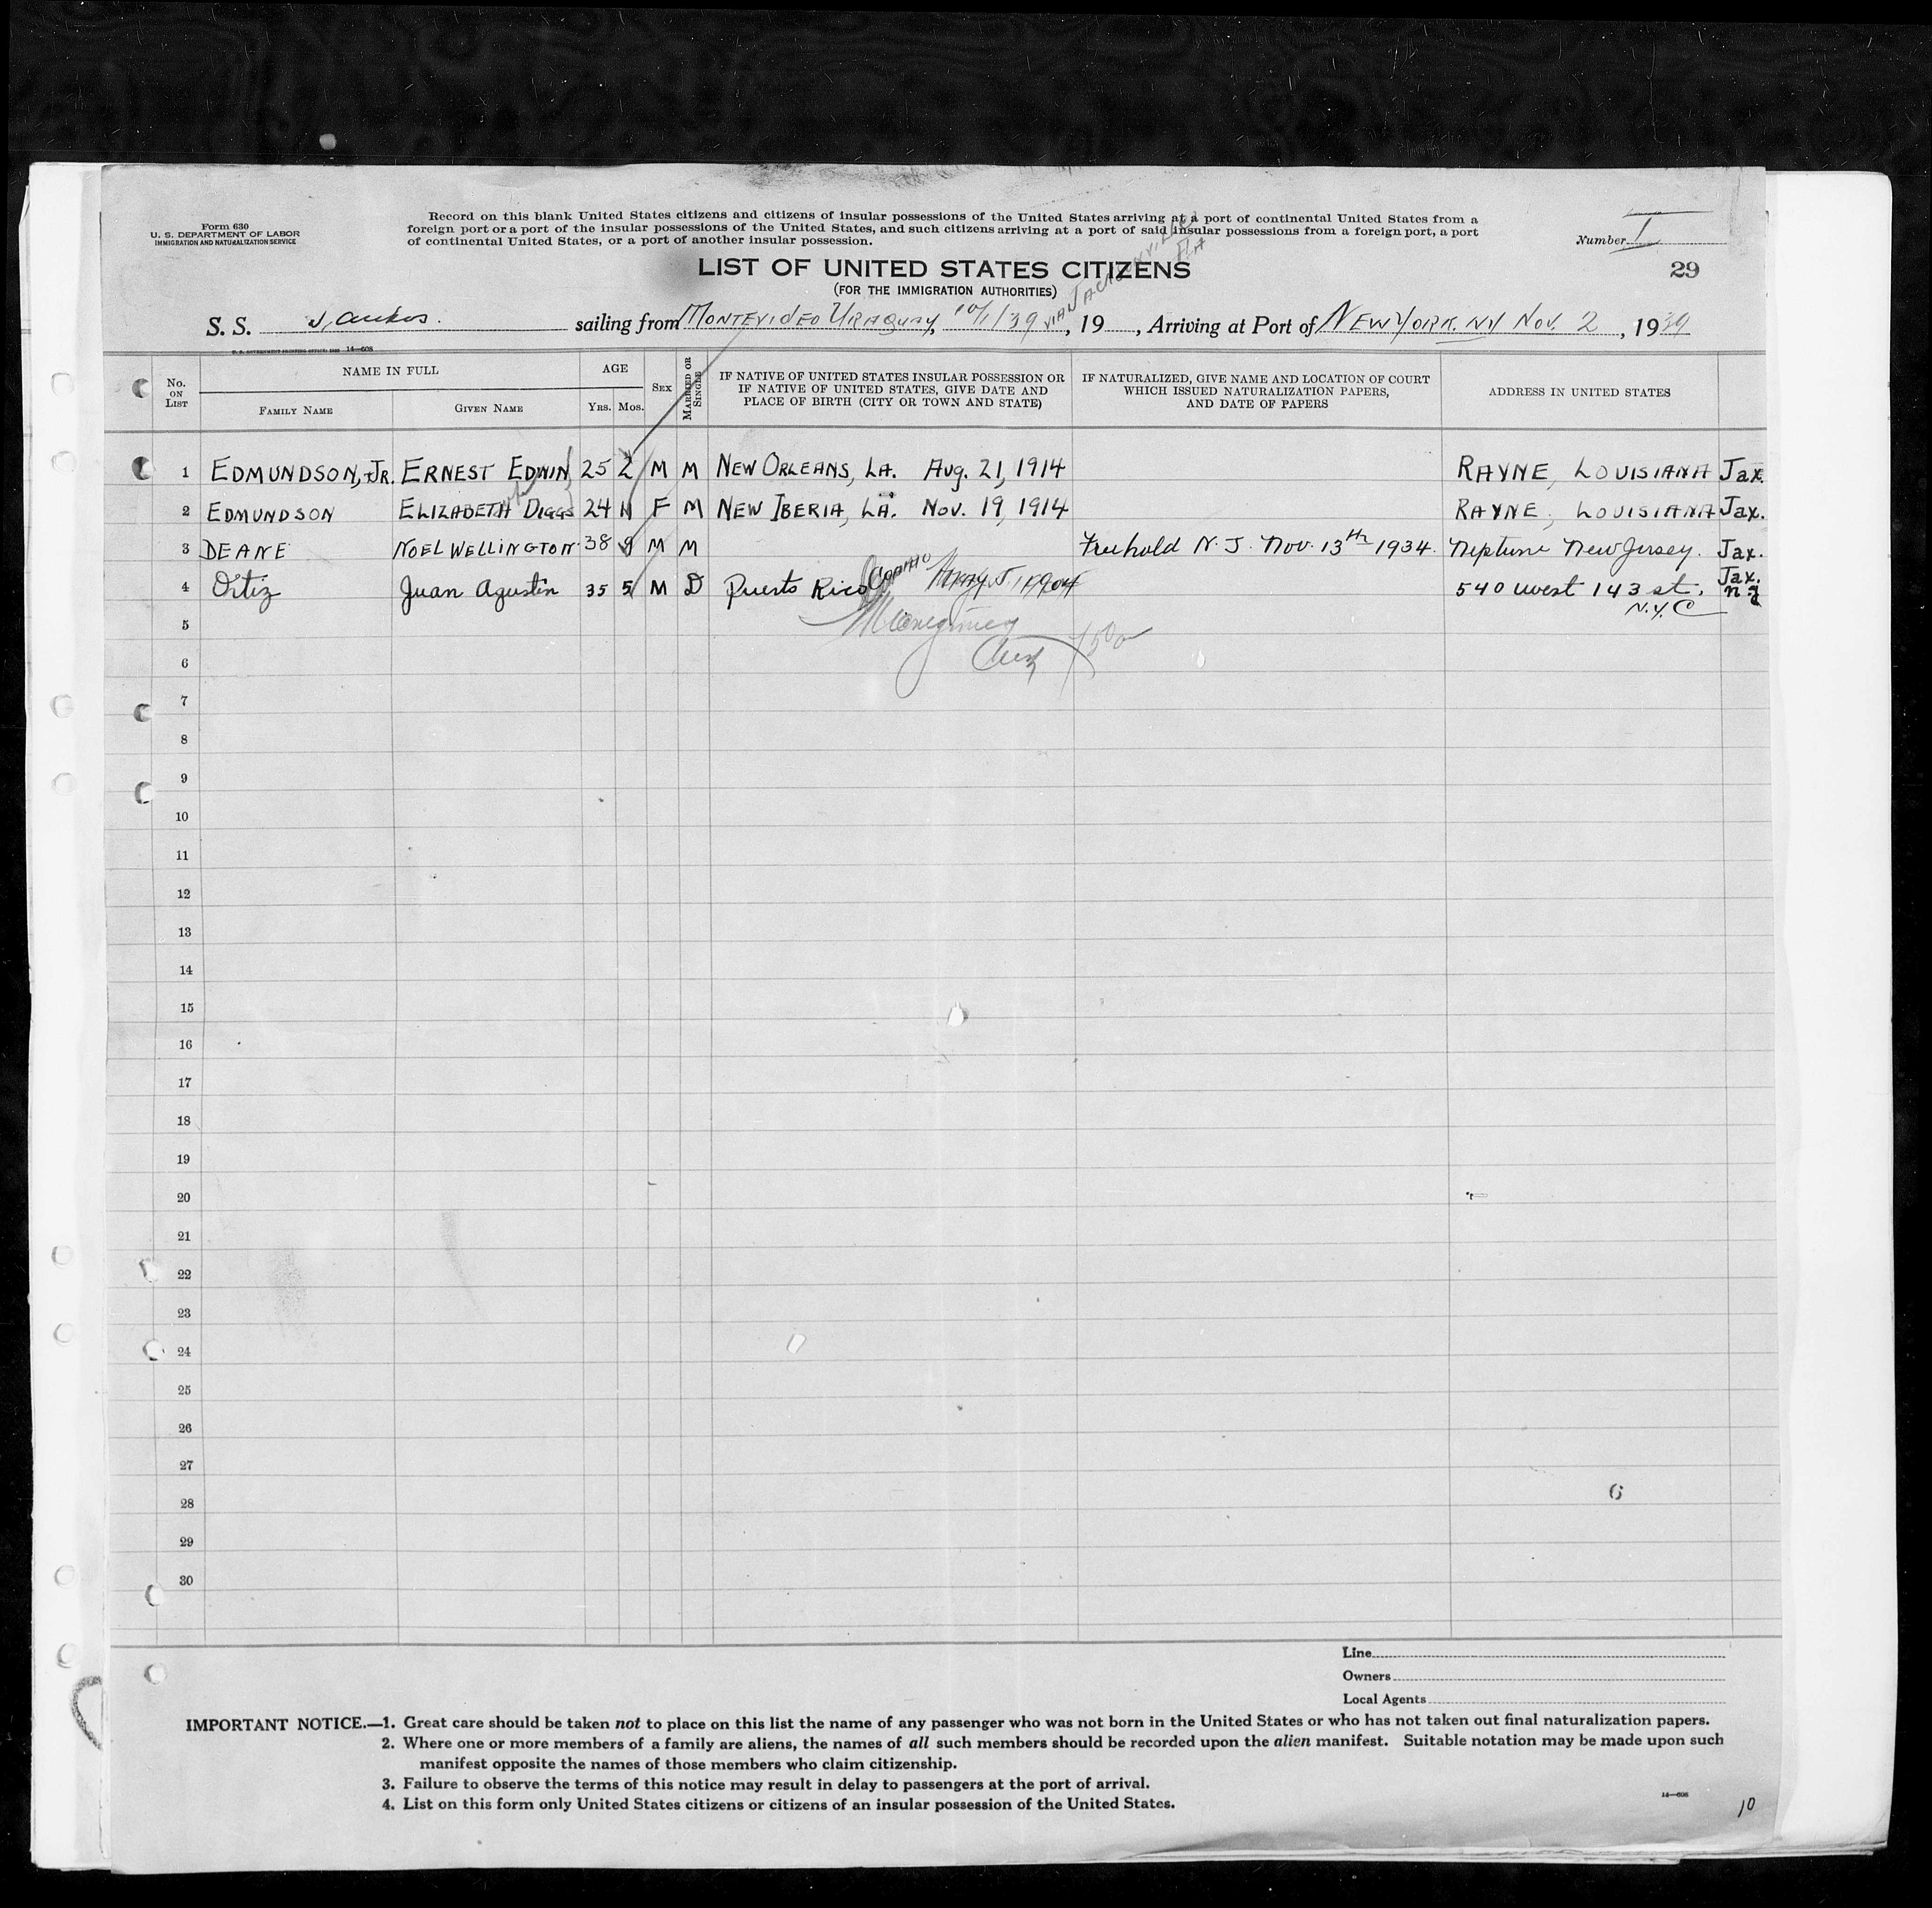 Form 630
U. S. DEPARTMENT OF LABOR
IMMIGRATION AND NATURALIZATION SERVICE
Record on this blank United States citizens and citizens of insular possessions of the United States arriving at a port of continental United States from a
foreign port or a port of the insular possessions of the United States, and such citizens arriving at a port of said insular possessions from a foreign port, a port
of continental United States, or a port of another insular possession.
Number I
29
LIST OF UNITED STATES CITIZENS
(FOR THE IMMIGRATION AUTHORITIES)
VIA JACKSONVILLE
FLA
S. S. sailing from MONTEVIDEO URAGUAY, 10/1/39, 19 , Arriving at Port of NEW YORK. NY NOV. 2, 1939
14—608
No. ON LIST
NAME IN FULL
FAMILY NAME
GIVEN NAME
AGE
YRS.
MOS.
SEX
MARRIED OR SINGLE
IF NATIVE OF UNITED STATES INSULAR POSSESSION OR
IF NATIVE OF UNITED STATES, GIVE DATE AND
PLACE OF BIRTH (CITY OR TOWN AND STATE)
IF NATURALIZED, GIVE NAME AND LOCATION OF COURT
WHICH ISSUED NATURALIZATION PAPERS,
AND DATE OF PAPERS
ADDRESS IN UNITED STATES
1 EDMUNDSON, JR. ERNEST EDWIN 25 2 M M NEW ORLEANS, LA. AUG. 21, 1914 RAYNE, LOUISIANA Jax.
2 EDMUNDSON ELIZABETH DIGGS 24 11 F M NEW IBERIA, LA. NOV. 19, 1914 RAYNE, LOUISIANA Jax.
3 DEANE NOEL WELLINGTON 38 9 M M Freehold N. J. Nov. 13th 1934. Neptune New Jersey. Jax.
4 Ortiz Juan Agustin 35 5 M D Puerto Rico May 5, 1904 540 west 143 st. N.Y.C Jax.
5
6
7
8
9
10
11
12
13
14
15
16
17
18
19
20
21
22
23
24
25
26
27
28
29
30
6
Line
Owners
Local Agents
IMPORTANT NOTICE.—1. Great care should be taken not to place on this list the name of any passenger who was not born in the United States or who has not taken out final naturalization papers.
2. Where one or more members of a family are aliens, the names of all such members should be recorded upon the alien manifest. Suitable notation may be made upon such
manifest opposite the names of those members who claim citizenship.
3. Failure to observe the terms of this notice may result in delay to passengers at the port of arrival.
4. List on this form only United States citizens or citizens of an insular possession of the United States.
14—608
10